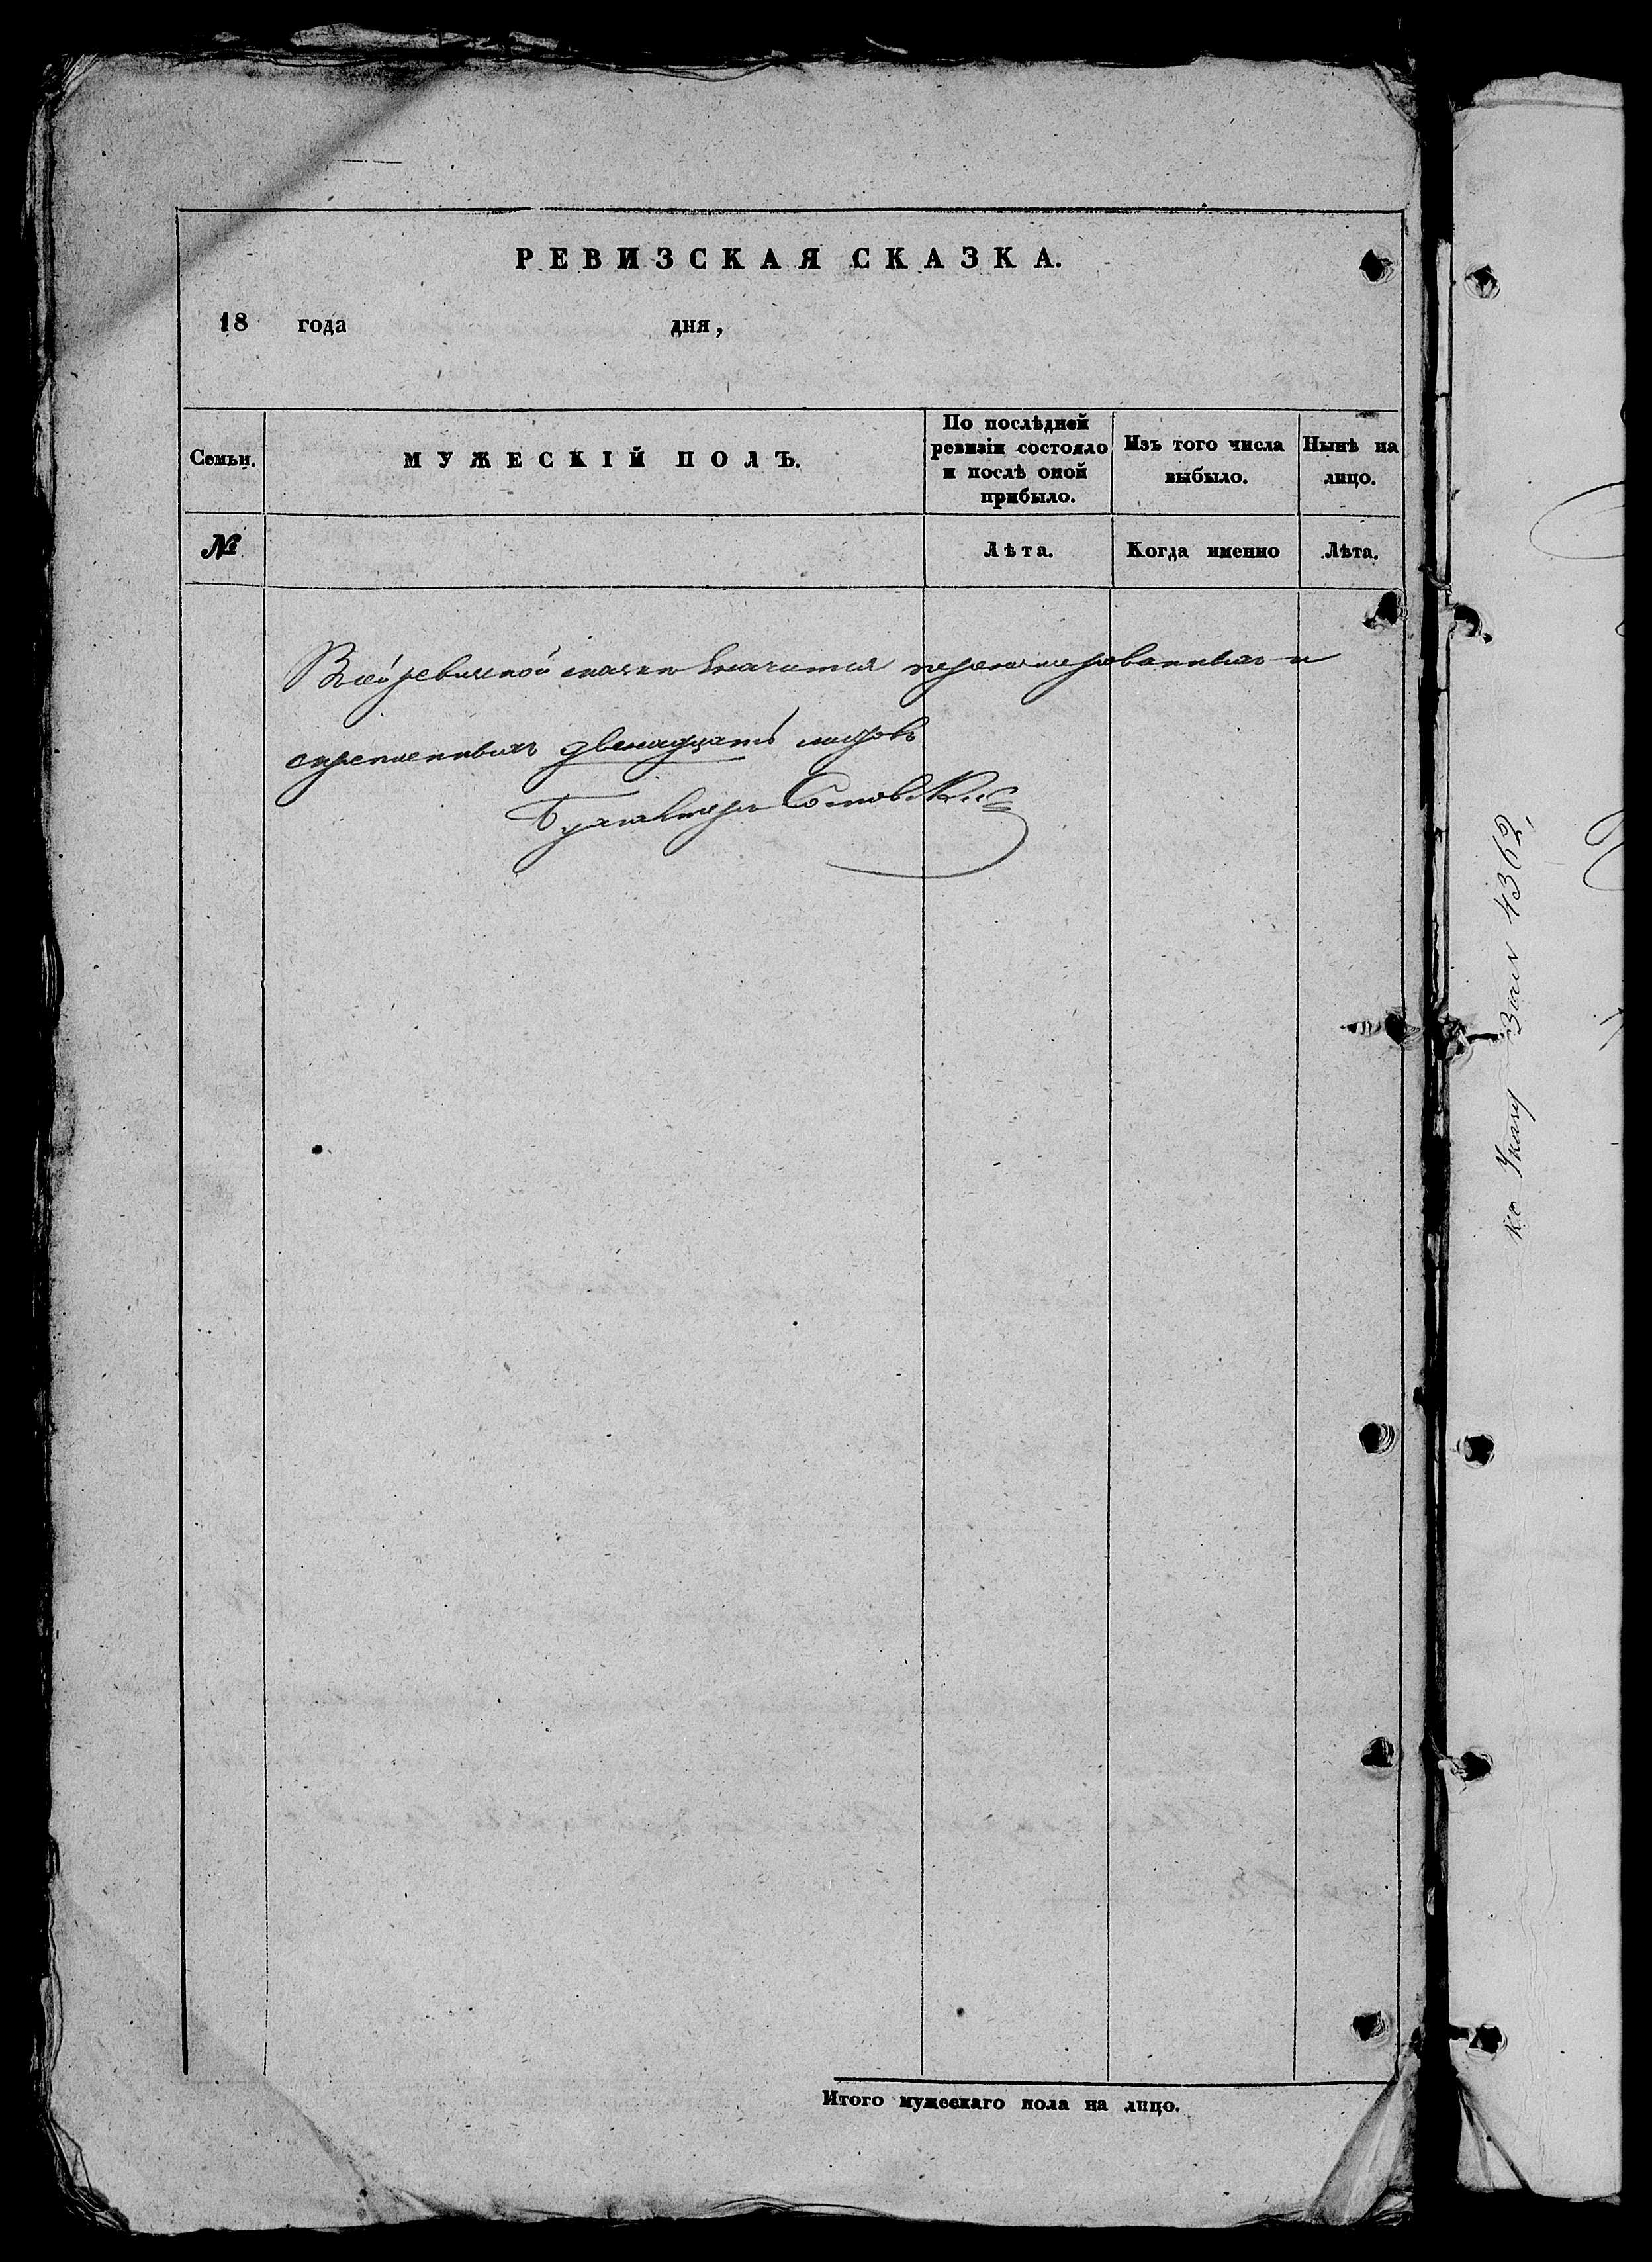 РЕВИЗСКАЯ СКАЗКА.
18 года дня,
Семьи.
МУЖЕСКІЙ ПОЛЪ.
По послѣдней
ревизіи состояло
и послѣ оной
прибыло.
Изъ того числа
выбыло.
Нынѣ на
лицо.
№
Лѣта.
Когда именно
Лѣта.
В сей ревизской сказки значится перенумерованныхъ и
скрепленныхъ двенадцать листовъ
Бухгалтеръ
Итого мужескаго пола на лицо.
къ Указу За № 4362,